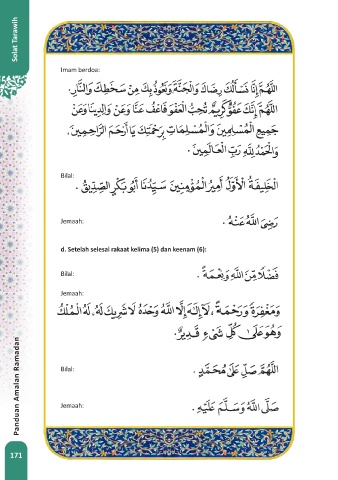 Solat Tarawih
Imam berdoa:
اَللّٰهُمَّ إِنَّا نَسْأَلُكَ رِضَاكَ وَالْجَنَّةَ وَنَعُوْذُ بِكَ مِنْ سَخَطِكَ وَالنَّارِ.
اَللّٰهُمَّ إِنَّكَ عَفُوٌّ كَرِيْمٌ تُحِبُّ الْعَفْوَ فَاعْفُ عَنَّا وَعَنْ وَالِدِيْنَا وَعَنْ
جَمِيْعِ الْمُسْلِمِيْنَ وَالْمُسْلِمَاتِ بِرَحْمَتِكَ يَا أَرْحَمَ الرَّاحِمِيْنَ،
وَالْحَمْدُ لِلّٰهِ رَبِّ الْعَالَمِيْنَ .
Bilal:
اَلْخَلِيْفَةُ الْأَوَّلُ أَمِيْرُ الْمُؤْمِنِيْنَ سَيِّدُنَا أَبُوْ بَكْرٍ الصِّدِّيْقُ .
Jemaah:
رَضِيَ اللّٰهُ عَنْهُ .
d. Setelah selesai rakaat kelima (5) dan keenam (6):
Bilal:
فَضْلًا مِّنَ اللّٰهِ وَنِعْمَةً .
Jemaah:
وَمَغْفِرَةً وَرَحْمَةً، لَآ إِلٰهَ إِلَّا اللّٰهُ وَحْدَهُ لَا شَرِيْكَ لَهُ، لَهُ الْمُلْكُ
وَهُوَ عَلَىٰ كُلِّ شَيْءٍ قَدِيْرٌ.
Bilal:
اَللّٰهُمَّ صَلِّ عَلَىٰ مُحَمَّدٍ .
Jemaah:
صَلَّى اللّٰهُ وَسَلَّمَ عَلَيْهِ .
Panduan Amalan Ramadan
171